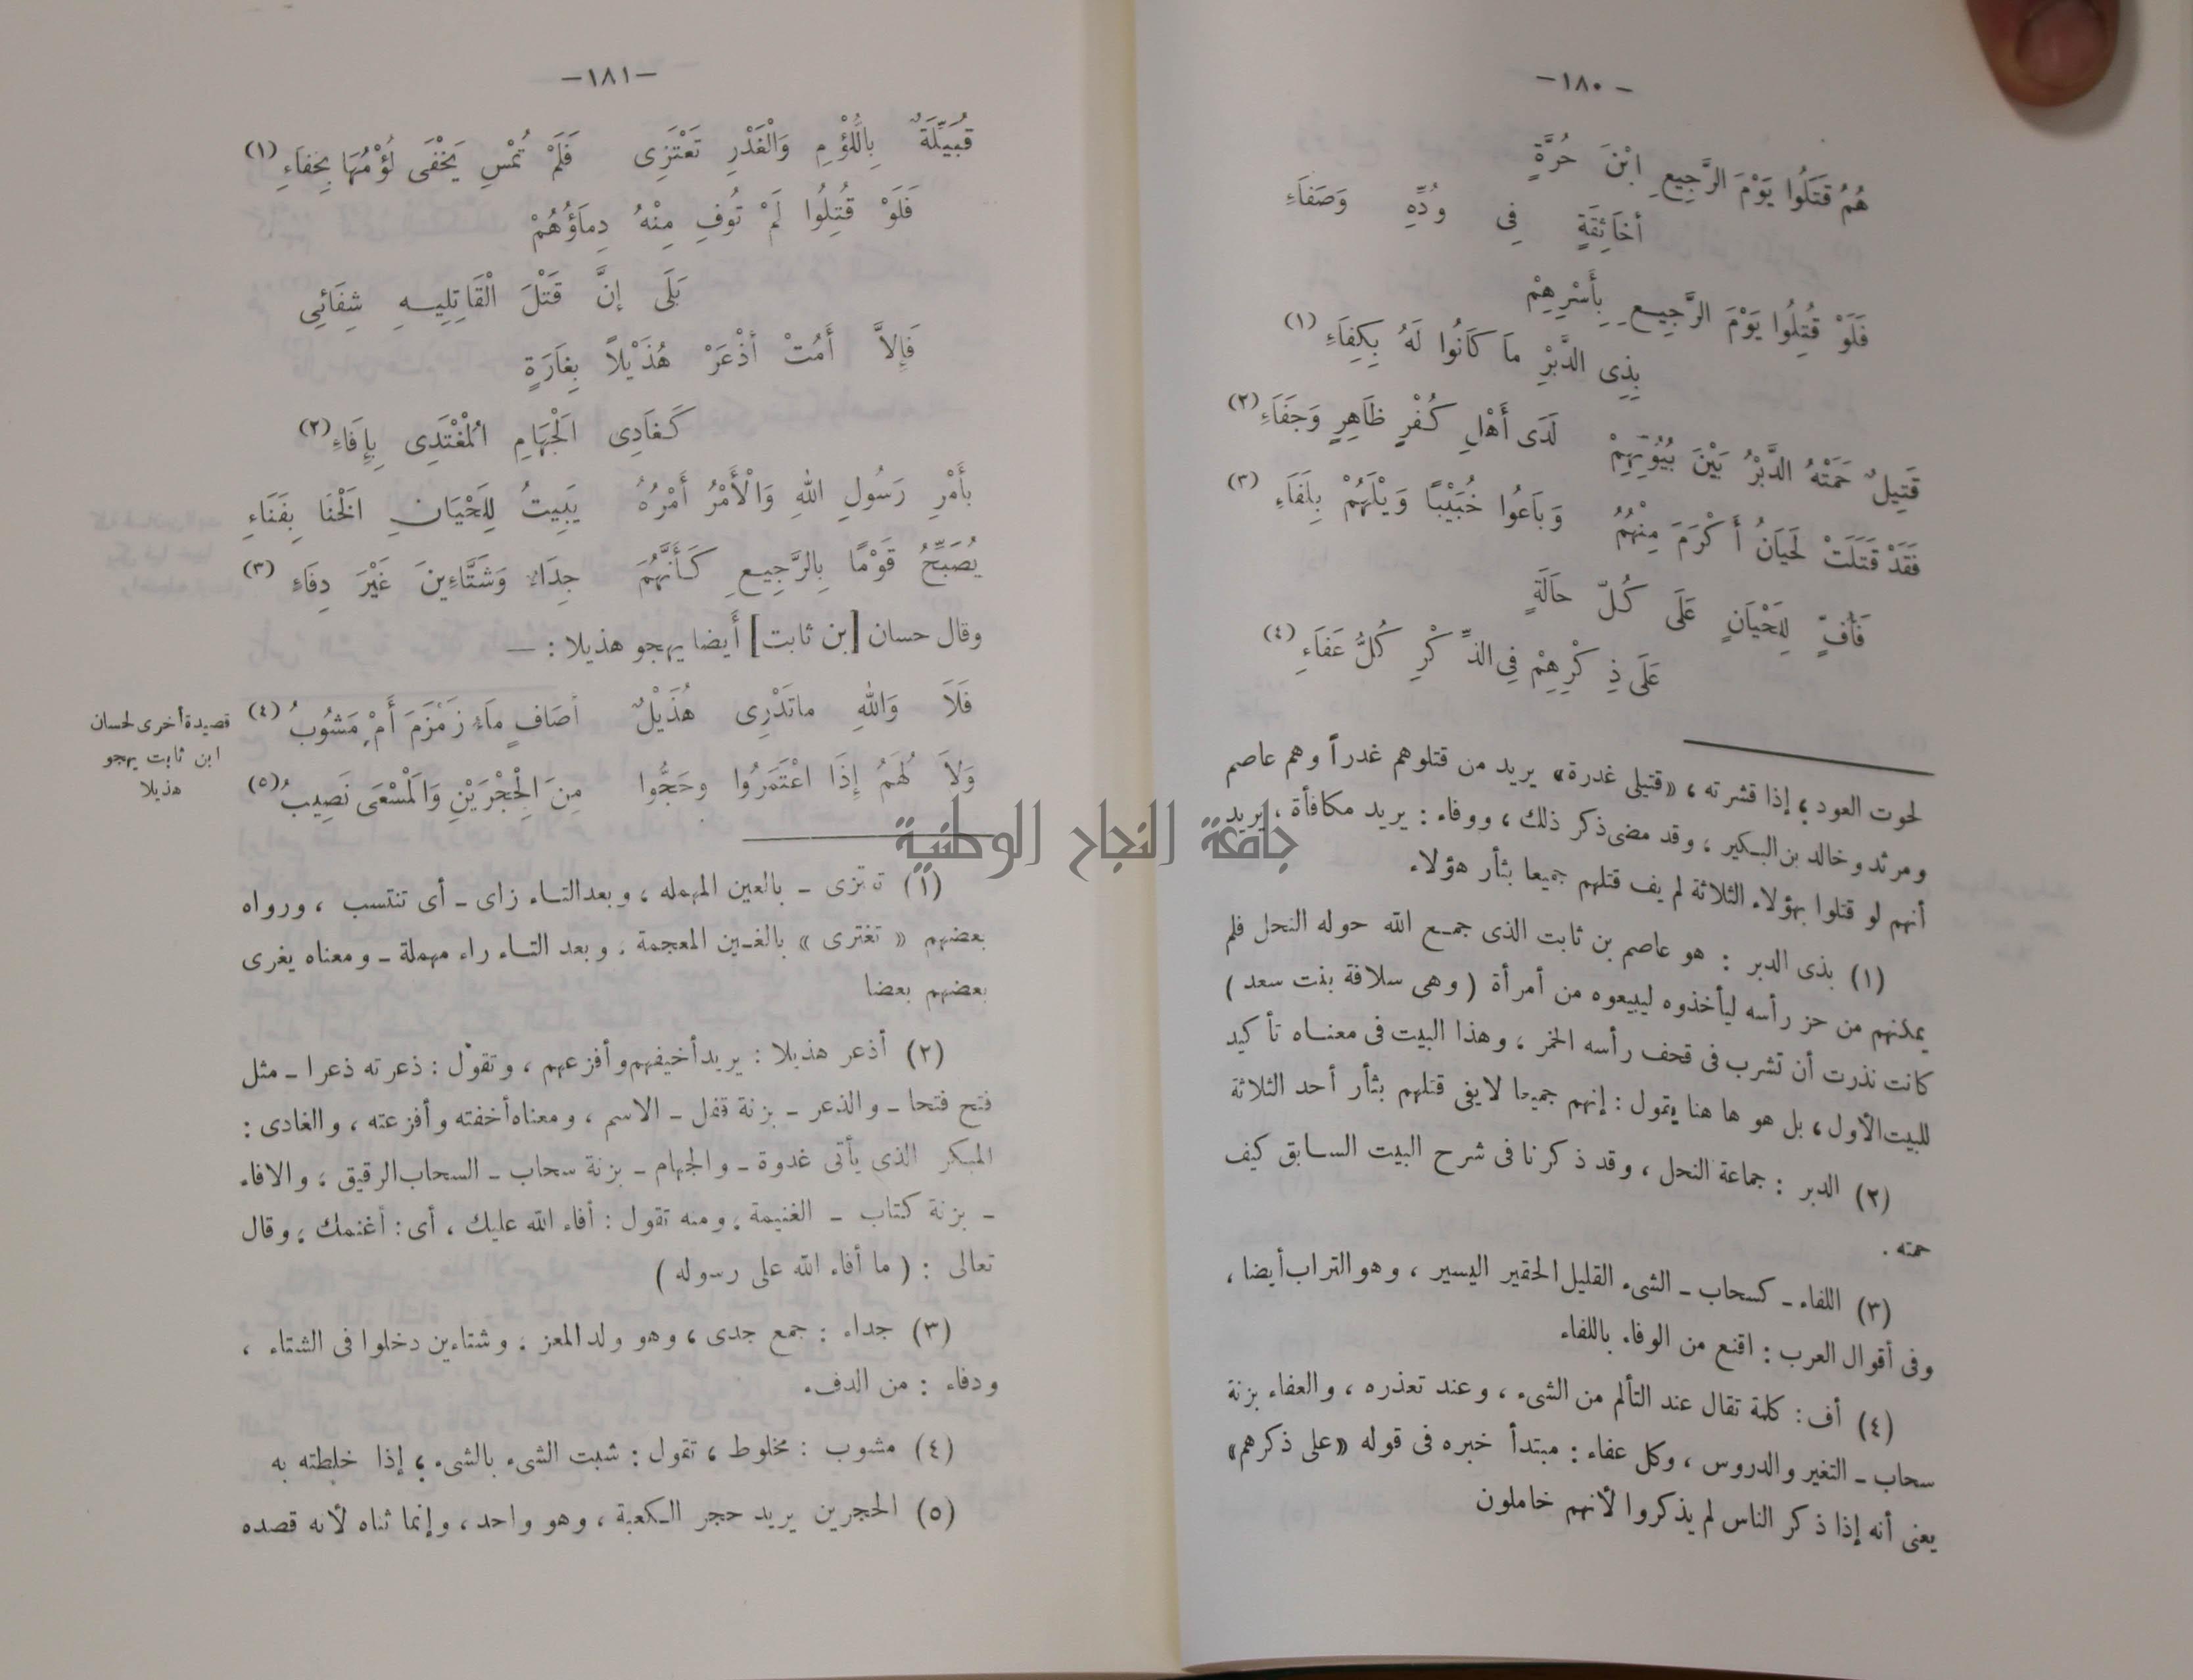 - ١٨٠ -
هُمُ قَتَلُوا يَوْمَ الرَّجِيعِ ابْنَ حُرَّةٍ
أَخَاثِقَةٍ فِى وُدِّهِ وَصَفَاءِ
فَلَوْ قُتِلُوا يَوْمَ الرَّجِيعِ بِأَسْرِهِمْ
بِذِى الدَّبْرِ مَا كَانُوا لَهُ بِكِفَاءِ (١)
قَتِيلٌ حَمَتْهُ الدَّبْرُ بَيْنَ بُيُوتِهِمْ لَدَى أَهْلِ كُفْرٍ ظَاهِرٍ وَجَفَاءِ (٢)
فَقَدْ قَتَلَتْ لَحْيَانُ أَكْرَمَ مِنْهُمُ وَبَاعُوا خُبَيْبًا وَيْلَهُمْ بِلَفَاءِ (٣)
فَأُفٍّ لِلَحْيَانٍ عَلَى كُلِّ حَالَةٍ
عَلَى ذِكْرِهِمْ فِى الذِّكْرِ كُلُّ عَفَاءِ (٤)
لحوت العود ، إذا قشرته ، «قتيلى غدرة» يريد من قتلوهم غدراً وهم عاصم
ومرثد وخالد بن البكير ، وقد مضى ذكر ذلك ، ووفاء : يريد مكافأة ، يريد
أنهم لو قتلوا بهؤلاء الثلاثة لم يف قتلهم جميعا بثأر هؤلاء
(١) بذى الدبر : هو عاصم بن ثابت الذى جمع الله حوله النحل فلم
يمكنهم من حز رأسه ليأخذوه ليبيعوه من أمرأة ( وهى سلافة بنت سعد )
كانت نذرت أن تشرب فى قحف رأسه الخمر ، وهذا البيت فى معناه تأكيد
للبيت الأول ، بل هو ها هنا يقول : إنهم جميعا لا يفى قتلهم بثأر أحد الثلاثة
(٢) الدبر : جماعة النحل ، وقد ذكرنا فى شرح البيت السابق كيف
حمته .
(٣) اللفاء - كسحاب - الشىء القليل الحقير اليسير ، وهو التراب أيضا ،
وفى أقوال العرب : اقنع من الوفاء باللفاء
(٤) أف : كلمة تقال عند التألم من الشىء ، وعند تعذره ، والعفاء بزنة
سحاب - التغير والدروس ، وكل عفاء : مبتدأ خبره فى قوله «على ذكرهم»
يعنى أنه إذا ذكر الناس لم يذكروا لأنهم خاملون
-١٨١-
قُبَيِّلَةٌ بِاللُّؤْمِ وَالْغَدْرِ تَعْتَزِى فَلَمْ تُمْسِ يَخْفَى لُؤْمُهَا بِخَفَاءِ (١)
فَلَوْ قُتِلُوا لَمْ تُوفِ مِنْهُ دِمَاؤُهُمْ
بَلَى إِنَّ قَتْلَ الْقَاتِلِيهِ شِفَائِى
فَإِلاَّ أَمُتْ أَذْعَرْ هُذَيْلاً بِغَارَةٍ
كَغَادِى الْجَهَامِ الْمُغْتَدِى بِإِفَاءِ (٢)
بِأَمْرِ رَسُولِ اللهِ وَالْأَمْرُ أَمْرُهُ يَبِيتُ لِلَحْيَانِ الْخَنَا بِفَنَاءِ
يُصَبِّحُ قَوْمًا بِالرَّجِيعِ كَأَنَّهُمْ جِدَاءُ وَشَتَّاءِينَ غَيْرَ دِفَاءِ (٣)
وقال حسان [بن ثابت] أيضا يهجو هذيلا : —
فَلاَ وَاللهِ مَاتَدْرِى هُذَيْلٌ أَصَافٍ مَاءُ زَمْزَمَ أَمْ مَشُوبُ (٤)
وَلاَ لَهُمُ إِذَا اعْتَمَرُوا وَحَجُّوا مِنَ الْحِجْرَيْنِ وَالْمَسْعَى نَصِيبُ (٥)
قصيدة أخرى لحسان
ابن ثابت يهجو
هذيلا
(١) تعتزى - بالعين المهمله ، وبعد التاء زاى - أى تنتسب ، ورواه
بعضهم « تغترى » بالغين المعجمة . وبعد التاء راء مهملة - ومعناه يغرى
بعضهم بعضا
(٢) أذعر هذيلا : يريد أخيفهم وأفزعهم ، وتقول : ذعرته ذعرا - مثل
فتح فتحا - والذعر - بزنة قفل - الاسم ، ومعناه أخفته وأفزعته ، والغادى :
المبكر الذى يأتى غدوة - والجهام - بزنة سحاب - السحاب الرقيق ، والافاء
- بزنة كتاب - الغنيمة ، ومنه تقول : أفاء الله عليك ، أى : أغنمك ، وقال
تعالى : ( ما أفاء الله على رسوله )
(٣) جداء : جمع جدى ، وهو ولد المعز . وشتاءين دخلوا فى الشتاء ،
ودفاء : من الدفء
(٤) مشوب : مخلوط ، تقول : شبت الشىء بالشىء ، إذا خلطته به
(٥) الحجرين يريد حجر الكعبة ، وهو واحد ، وإنما ثناه لأنه قصده
جامعة النجاح الوطنية